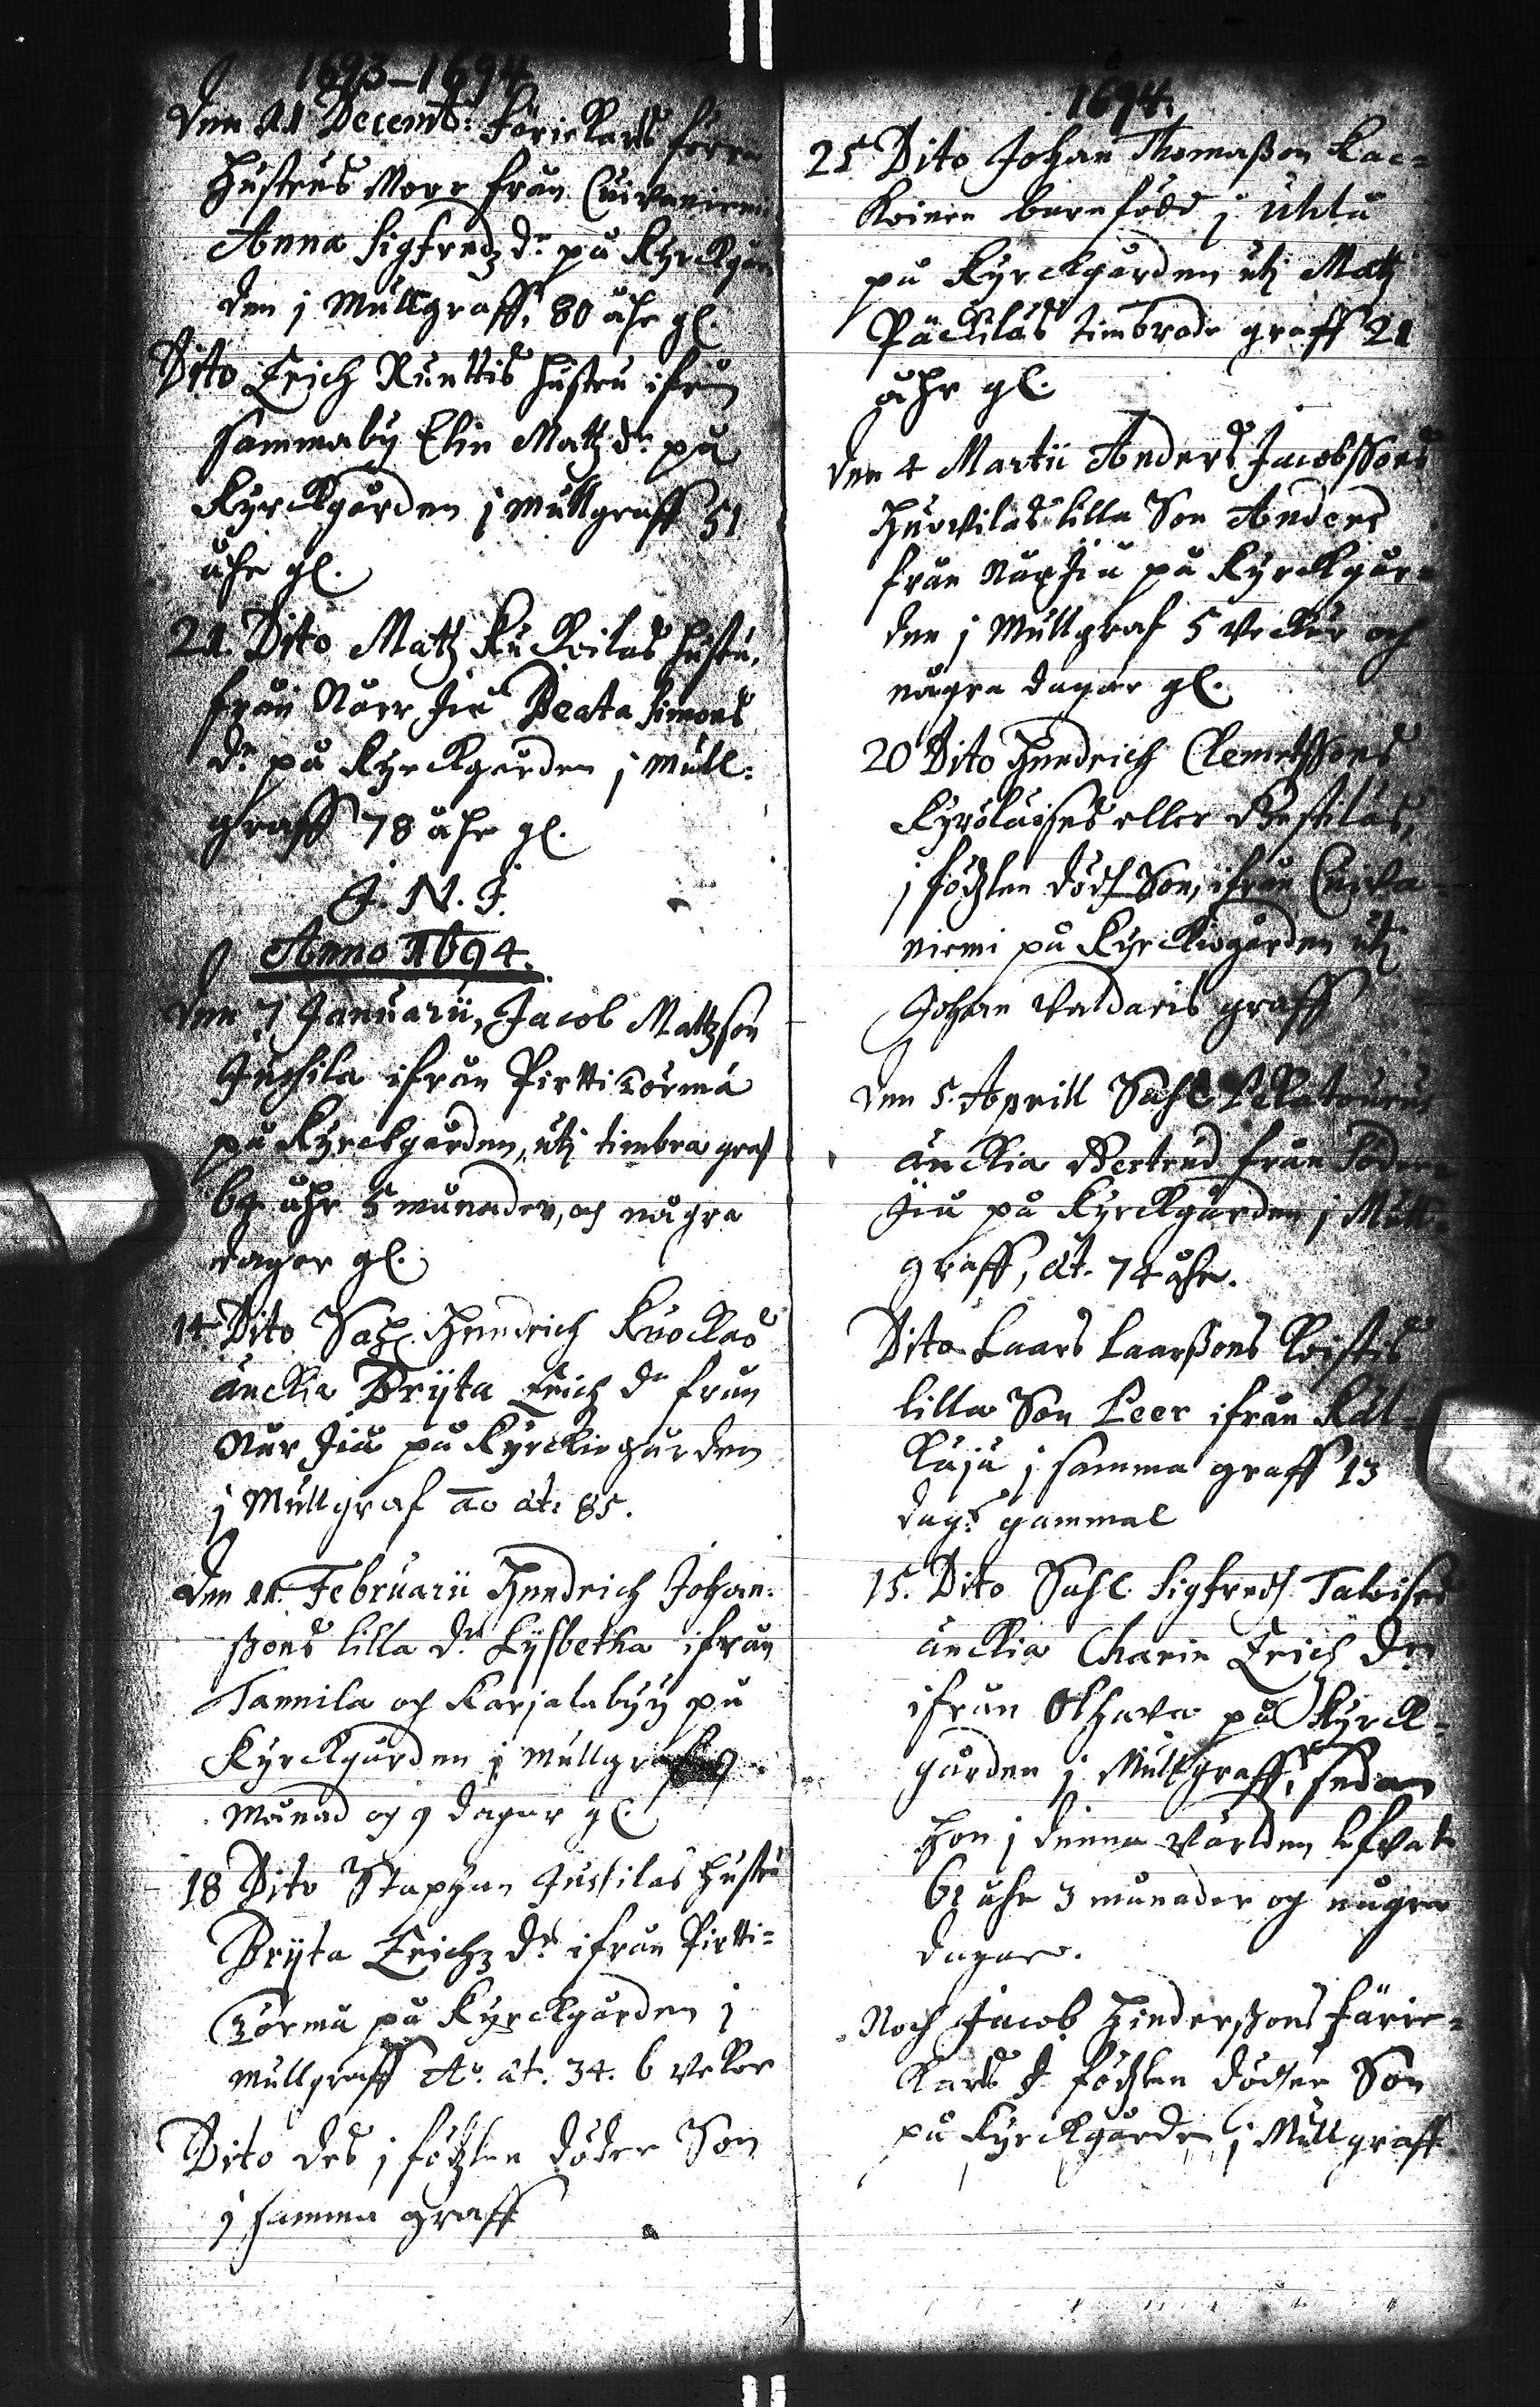 1693-1694
den 21 Decemb: Färiekarls förra
Hustrus Moor från Cuivaniemi
Anna Sigfredz dr på Kyrckgår
den j Mullgraff, 80 åhr gl.
Dito Erich Runttis hustru ifrån
sammaby Elin Matz dr på
Kyrckgården j mullgraff 51
åhr gl.
24. Dito Matz Kuckoilas hustru,
från Norr Jio Beata Simons
dr på Kyrckgården j Mull:
graff 78 åhr gl.
J. N. J.
Anno 1694.
den 7 Januarii, Jacob Mattzson
Juchila ifrån Pirttitörmä
på Kyrckgården, utj timbra graf
64 åhr 5 månader, och några
dagar gl.
14 Dito Sahl. Hendrich Kuockas
änckia Brijta Erich dr från
Nor Jio på Kyrckiogården
j Mullgraf ao æt: 85.
den 11. Februarii Hendrich Johan:
ssons lilla dr Lijsbetha ifrån
Tannila och Karjalabyy på
Kyrckgården j mullgraf
Månad och 9 dagar gl.
18 Dito Staphan Jussilas hustru
Brijta Erichz dr ifrån Pirtti=
törmä på Kyrckgården j
mullgraff Ao. æt. 34. 6 vekor
Dito des j födzlen döder Son
j samma graff
1694.
25 Dito Johan Thomasson Kac=
koinen barnfödd j Uhlu
på Kyrckgården utj Matz
Päckilas timbrade graff 21
åhr gl.
den 4 Martii Anders Jacobssons
Huovilas lilla Son Anders
från Nor Jio på Kyrckgår=
den j Mullgraf 5 veckor och
några dagar gl.
20 Dito Hendrich Clemetssons
eller
j födzlen dödf Son, ifrån Cuiva=
niemi på Kyrckiogården utj
Johan Valdaris graff
den 5. Aprill Sahl.
änckia Bertrud från Söder
Jio på Kyrckgården j Mull=
graff, æt. 74 åhr.
Dito Laars Laarssons Koistis
lilla Son Peer ifrån
j samma graff 13
dag: gammal
15. Dito Sahl. Sigfredh
änckia Charin Erich dr
ifrån Olhava på Kyrck=
gården j Mullgraff, sedan
hon j denna världen lefvat
61 åhr 3 månader och några
dagar.
Noch Jacob Hinderssons färie=
karls J födzlen döder Son
på Kyrckgården j Mullgraff